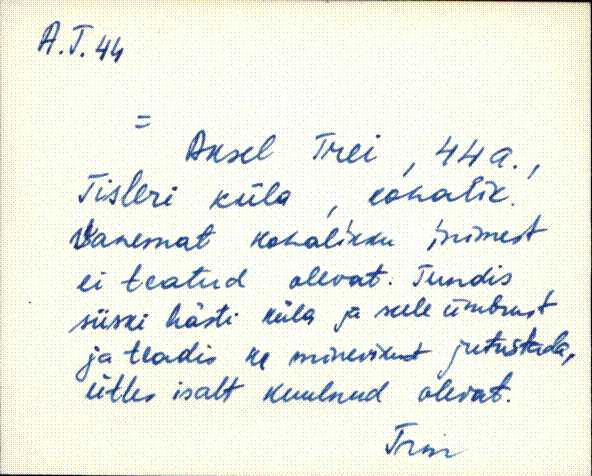 A.T. 44
=
Aksel Trei, 44 a.,
Tisleri küla, kohalik.
Vanemat kohalikku inimest
ei teatud olevat. Tundis
siiski hästi küla ja selle ümbrust
ja teadis ka minevikust jutustada,
ütles isalt kuulnud olevat.